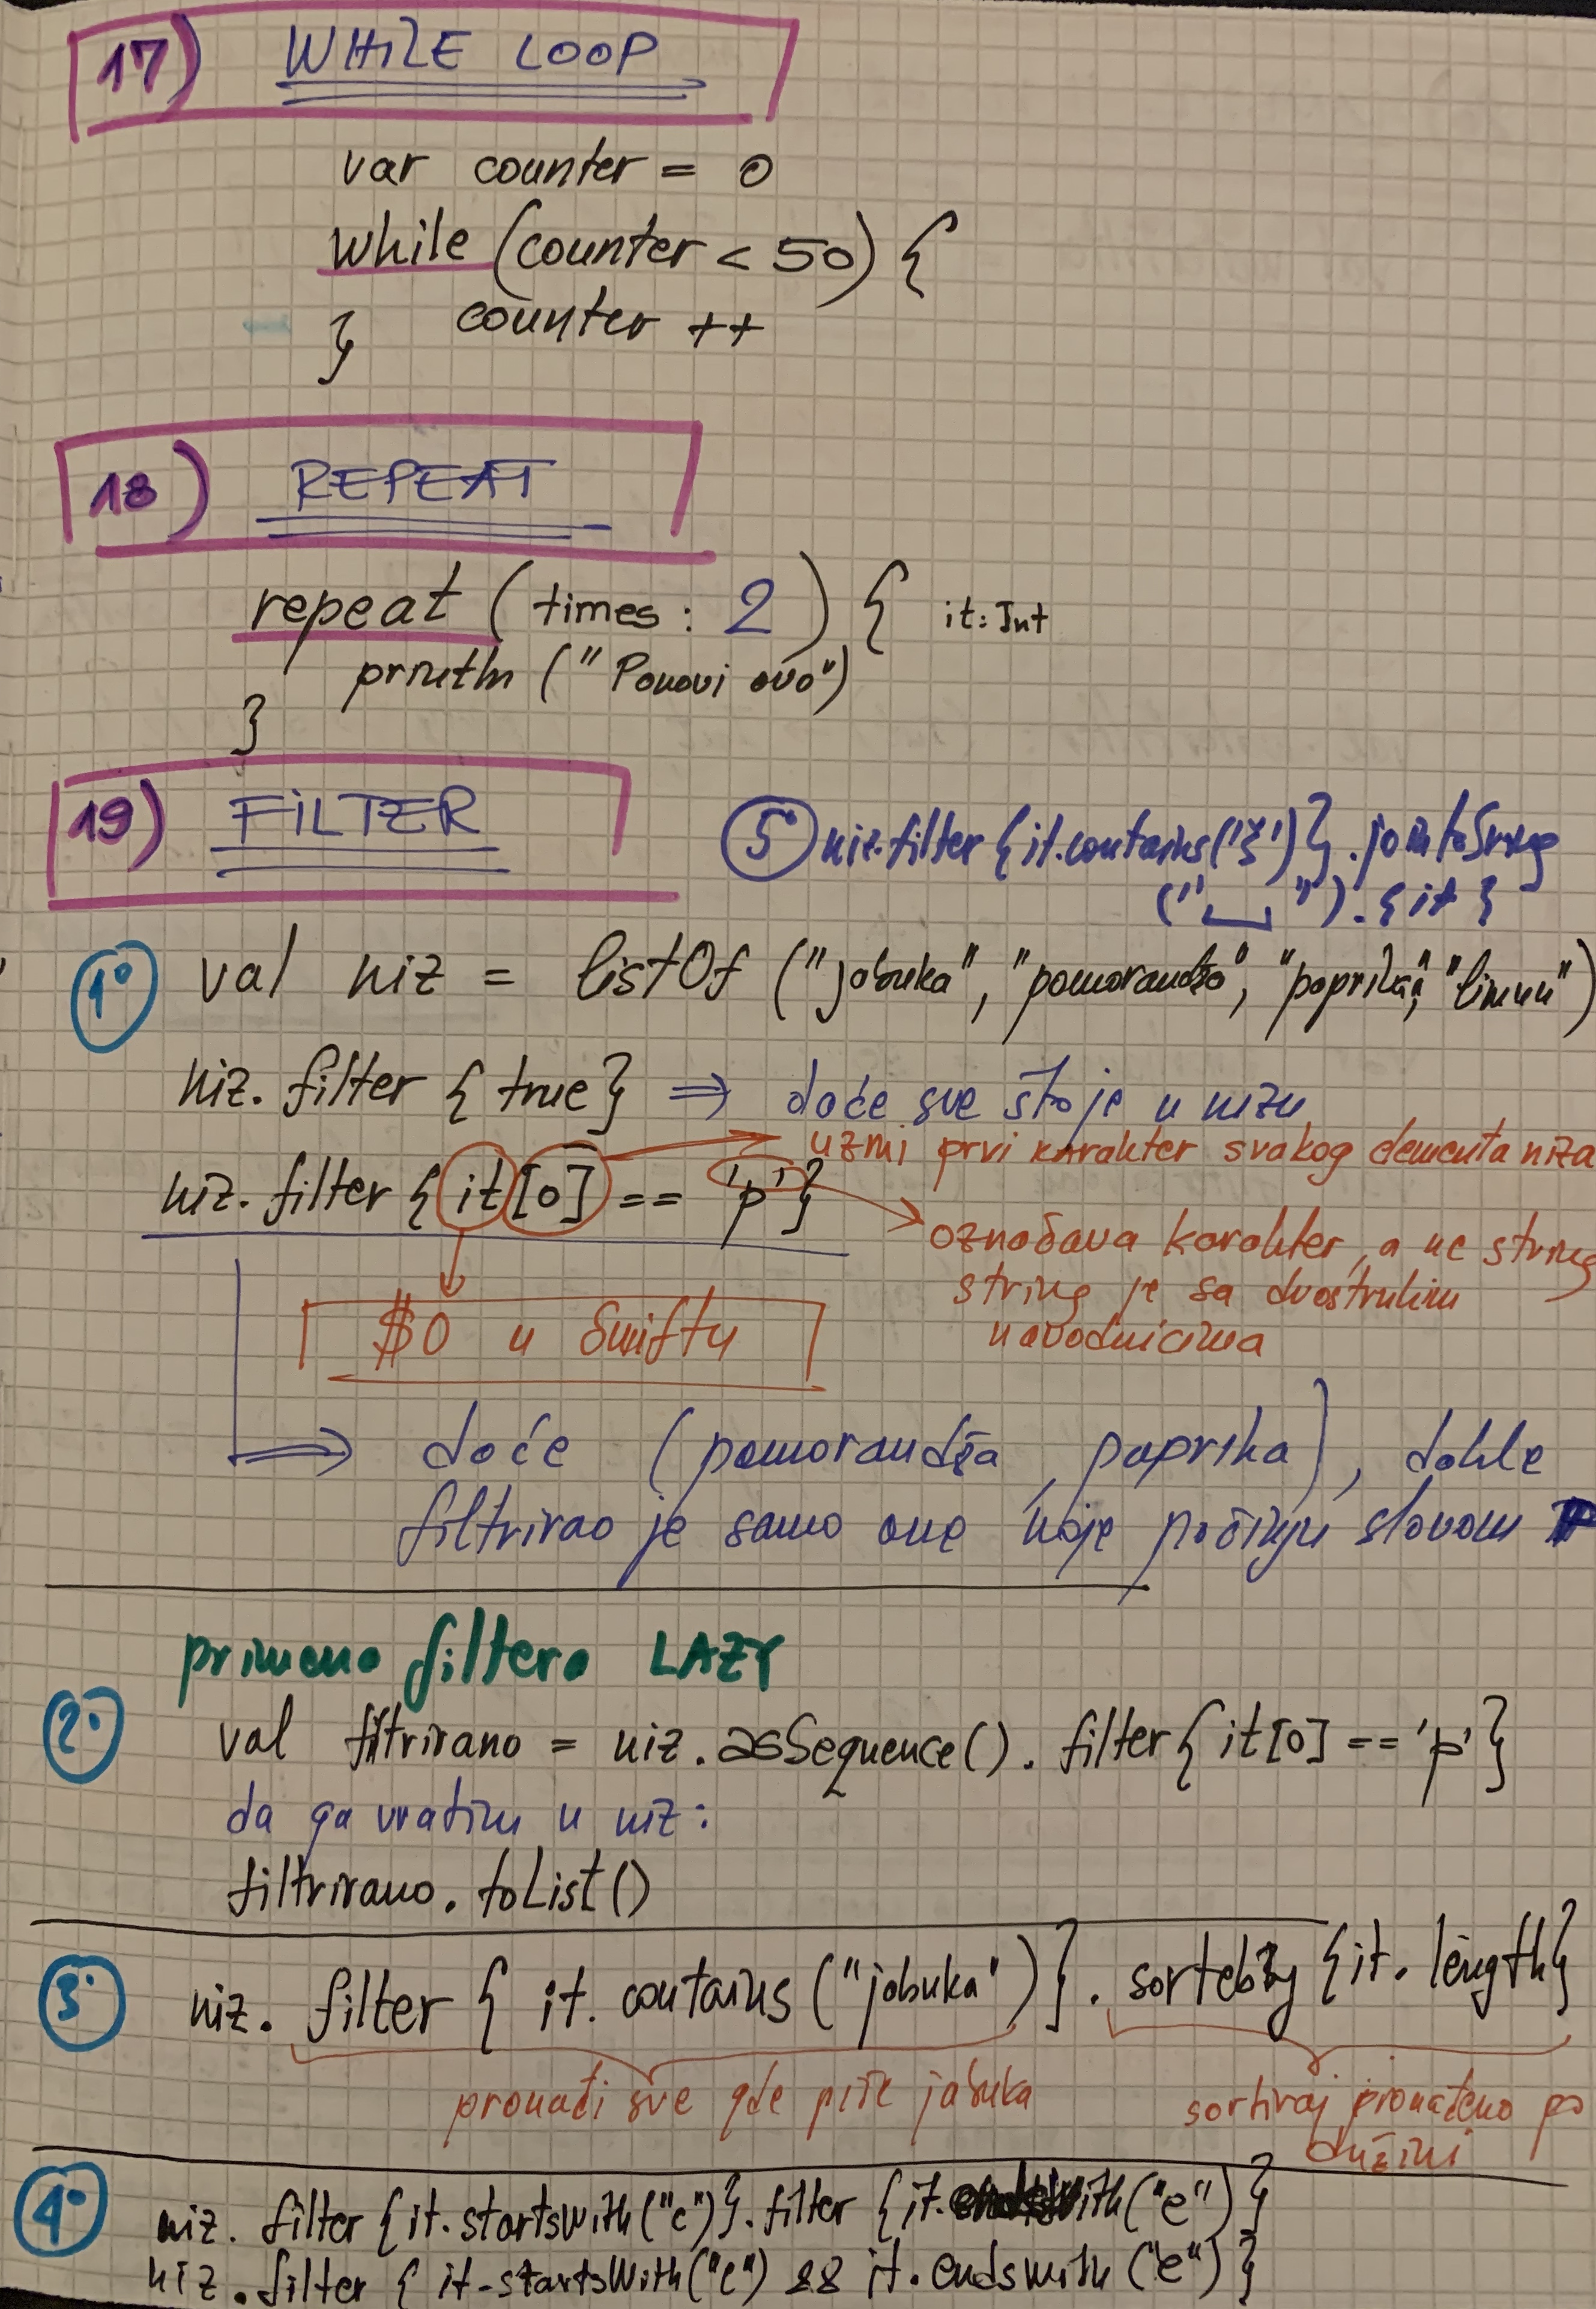 17) WHILE LOOP
var counter = 0
while (counter < 50) {
counter ++
}
18) REPEAT
repeat (times: 2) { it: Int
println ("Ponovi ovo")
}
19) FILTER
5 niz.filter {it.contains('ž')}.joinToString
("␣").{it}
1° val niz = listOf ("jabuka", "pomorandža", "paprika", "limun")
niz.filter {true} ⇒ doće sve što je u nizu
uzmi prvi karakter svakog elementa niza
niz.filter {it[0] == 'p'}
označava karakter, a ne string
string je sa dvostrukim
navodnicima
$0 u Swiftu
⇒ doće (pomorandža, paprika), dakle
filtrirao je samo one koje počinju slovom P
primena filtera LAZY
2. val filtrirano = niz.asSequence().filter{it[0] == 'p'}
da ga vratim u niz:
filtrirano.toList()
3. niz.filter { it.contains("jabuka")}.sortebBy {it.length}
pronađi sve gde piše jabuka
sortiraj pronađeno po
dužini
4. niz.filter {it.startsWith("e")}.filter {it.endsWith("e")}
niz.filter { it.startsWith("e") && it.endsWith("e")}